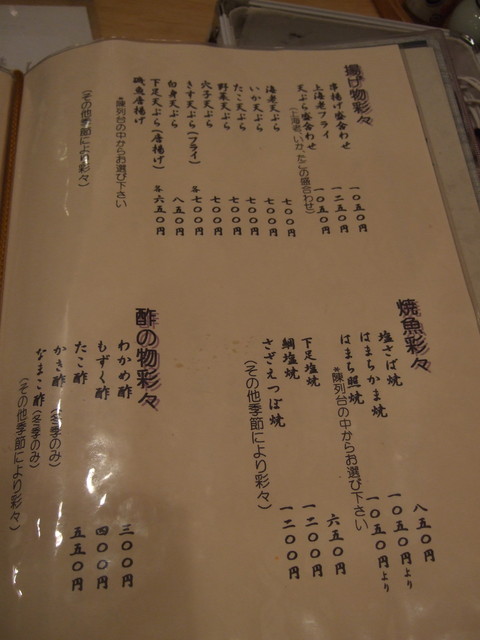 揚げ物彩々
串揚げ盛合わせ 一〇五〇円
上海老フライ 一二五〇円
天ぷら盛合わせ 一〇五〇円
(上海老、いか、たこの盛合わせ)
海老天ぷら 七〇〇円
いか天ぷら 七〇〇円
たこ天ぷら 七〇〇円
野菜天ぷら 七〇〇円
穴子天ぷら 七〇〇円
きす天ぷら(フライ) 各七〇〇円
白身天ぷら 八五〇円
下足天ぷら(唐揚げ) 各六五〇円
磯魚唐揚げ
*陳列台の中からお選び下さい
(その他季節により彩々)
焼魚彩々
塩さば焼 八五〇円
はまちかま焼 一〇五〇円より
はまち照焼 一〇五〇円より
*陳列台の中からお選び下さい
下足塩焼 六五〇円
鯛塩焼 一二〇〇円
さざえつぼ焼 一二〇〇円
(その他季節により彩々)
酢の物彩々
わかめ酢 三〇〇円
もずく酢 四〇〇円
たこ酢 五五〇円
かき酢(冬季のみ)
なまこ酢(冬季のみ)
(その他季節により彩々)